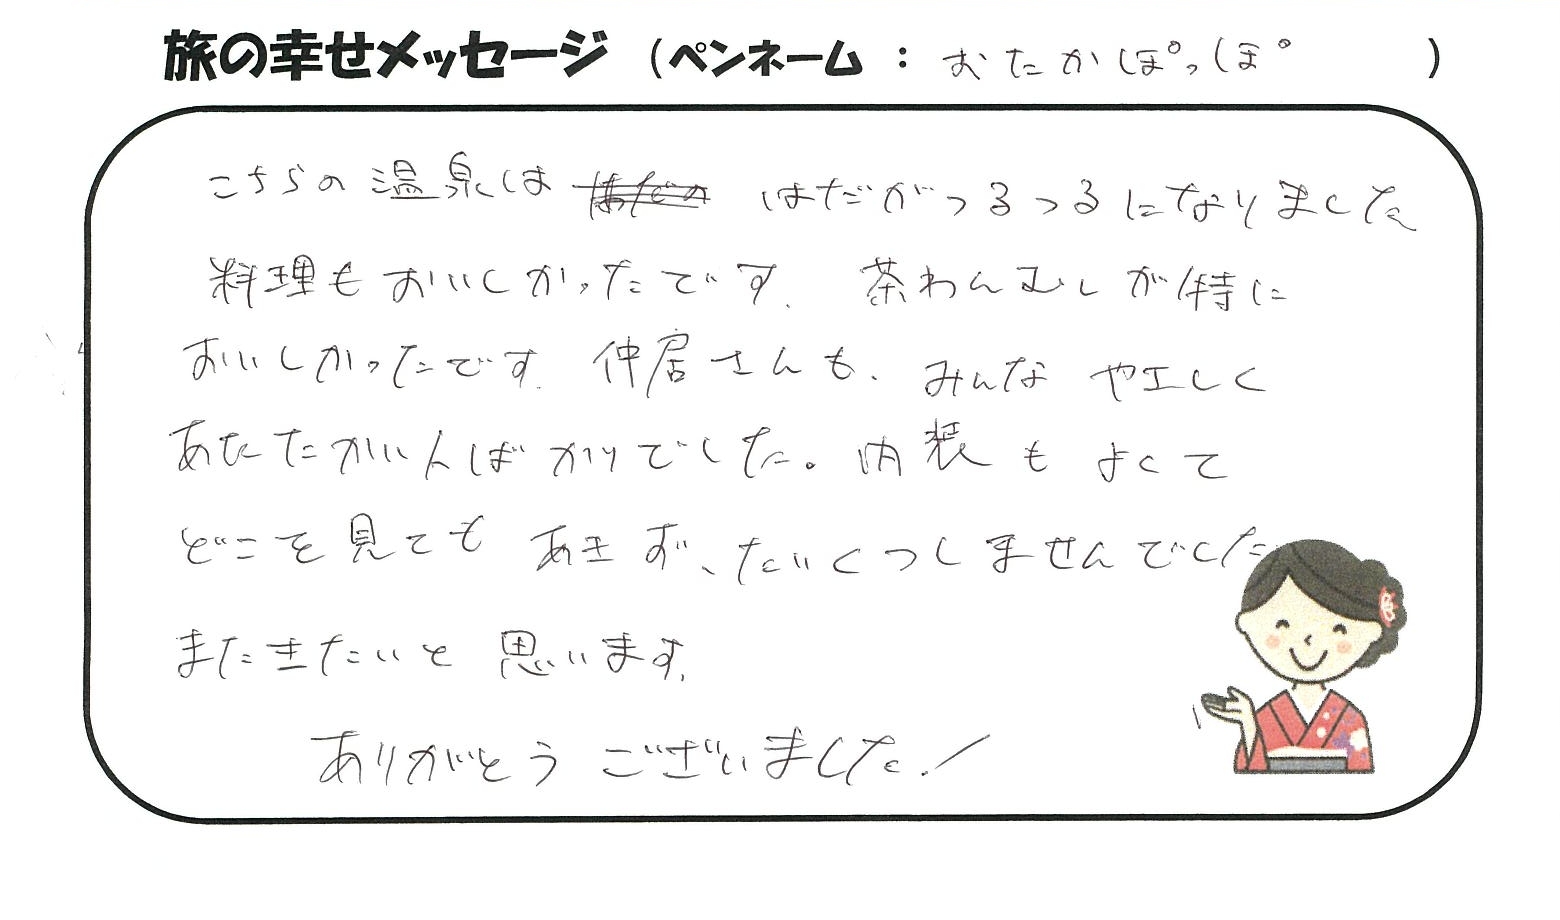 旅の幸せメッセージ (ペンネーム : おたかぽっぽ )
こちらの温泉は はだがつるつるになりました
料理もおいしかったです. 茶わんむしが特に
おいしかったです. 仲居さんも、みんな やエしく
あたたかい人ばかりでした。内装も よくて
どこを見ても あきず、たいくつしませんでした
またきたいと 思います.
ありがとう ございました.!